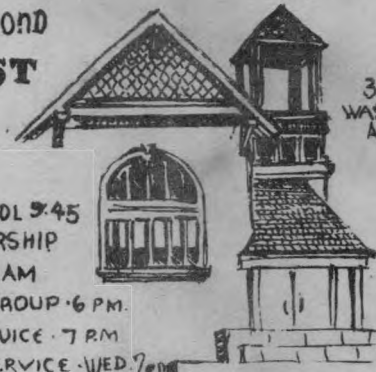 OND
ST
3
WAS
A
OL 9:45
RSHIP
AM
ROUP · 6 PM.
VICE · 7 P.M
ERVICE · WED. 7